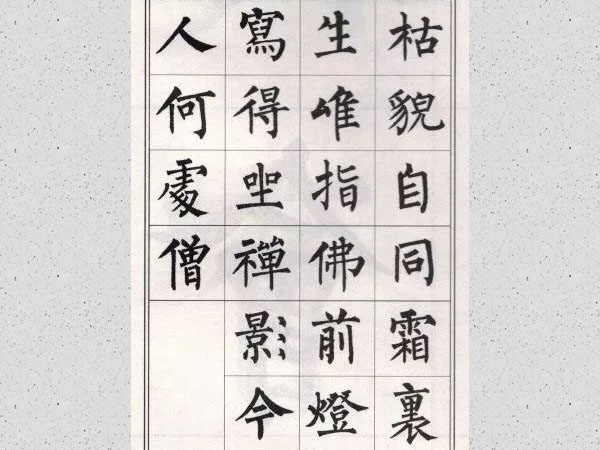 枯貌自同霜裏
生唯指佛前燈
寫得坐禪影今
人何處僧